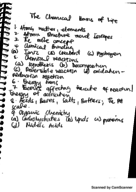 The Chemical Basis of Life
1. Atoms, matter, elements
2. Atomic structure Isotopes
3. The mole concept
4. Chemical Bonding
(a) Ionic (b) Covalent (c) Hydrogen
5. Chemical reactions
(a) Synthesis (b) Decomposition
(c) Reversible reaction (d) oxidation-
reduction reaction
6. Energy
7. Factors affecting the rate of reaction
Energy of activation
8. Acids, Bases, Salts, Buffers, The pH
scale
9. Organic Chemistry
(a) Carbohydrates (b) Lipids (c) proteins
(d) Nucleic Acids
CS Scanned with CamScanner